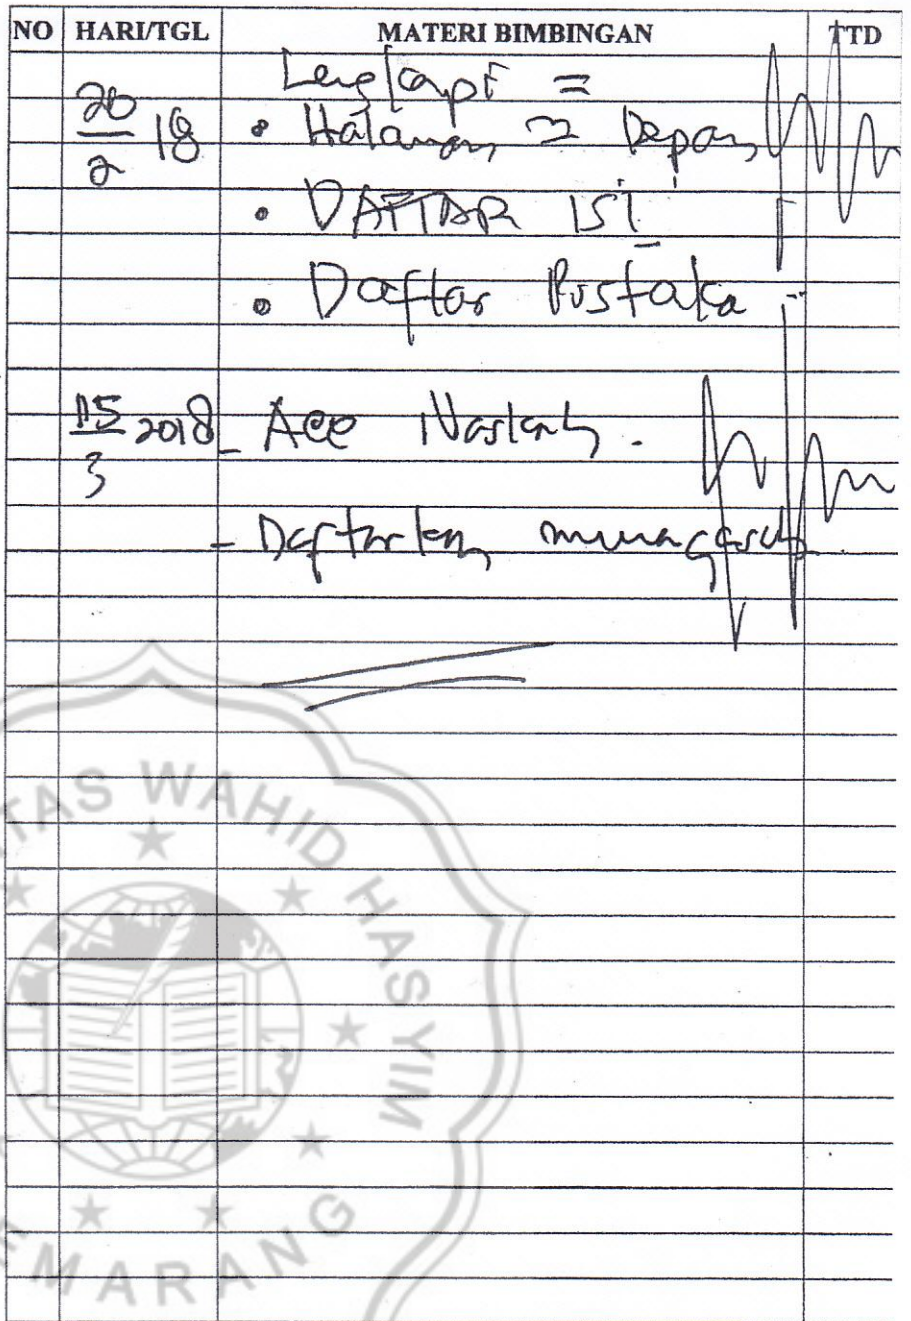 NO HARI/TGL MATERI BIMBINGAN TTD
Lengkapi =
20/2 18 • Halaman 2 Depan
• DAFTAR ISI
• Daftar Pustaka
15/3 2018 - Acc Naskah.
- Daftarkan munaqasah
TAS WAHID HASYIM
EMARANG